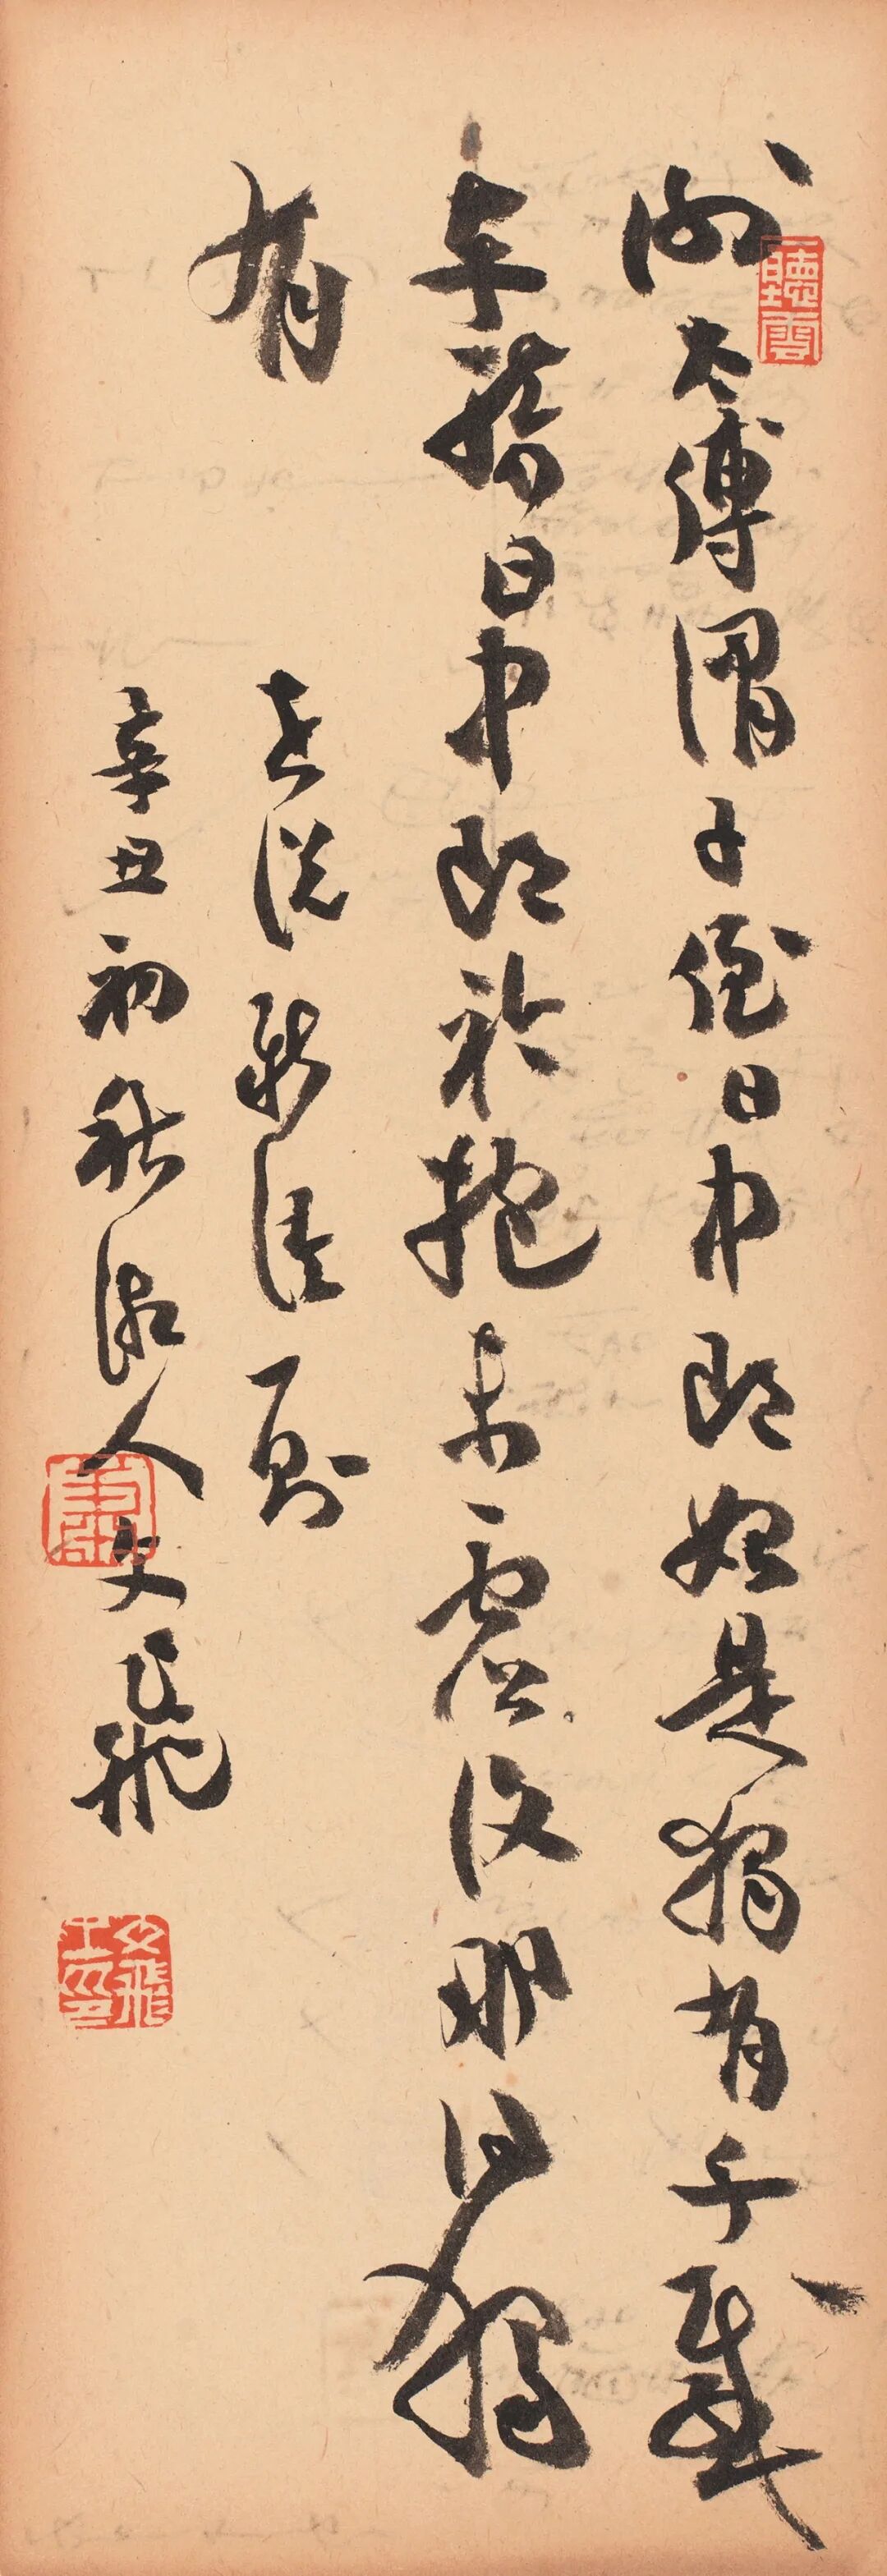 謝太傅謂子侄曰中郎始是獨有千載
車騎曰中郎衿抱未虛復那得獨
有
世說新語一則
辛丑初秋湘人文飛
聽雲
蕭